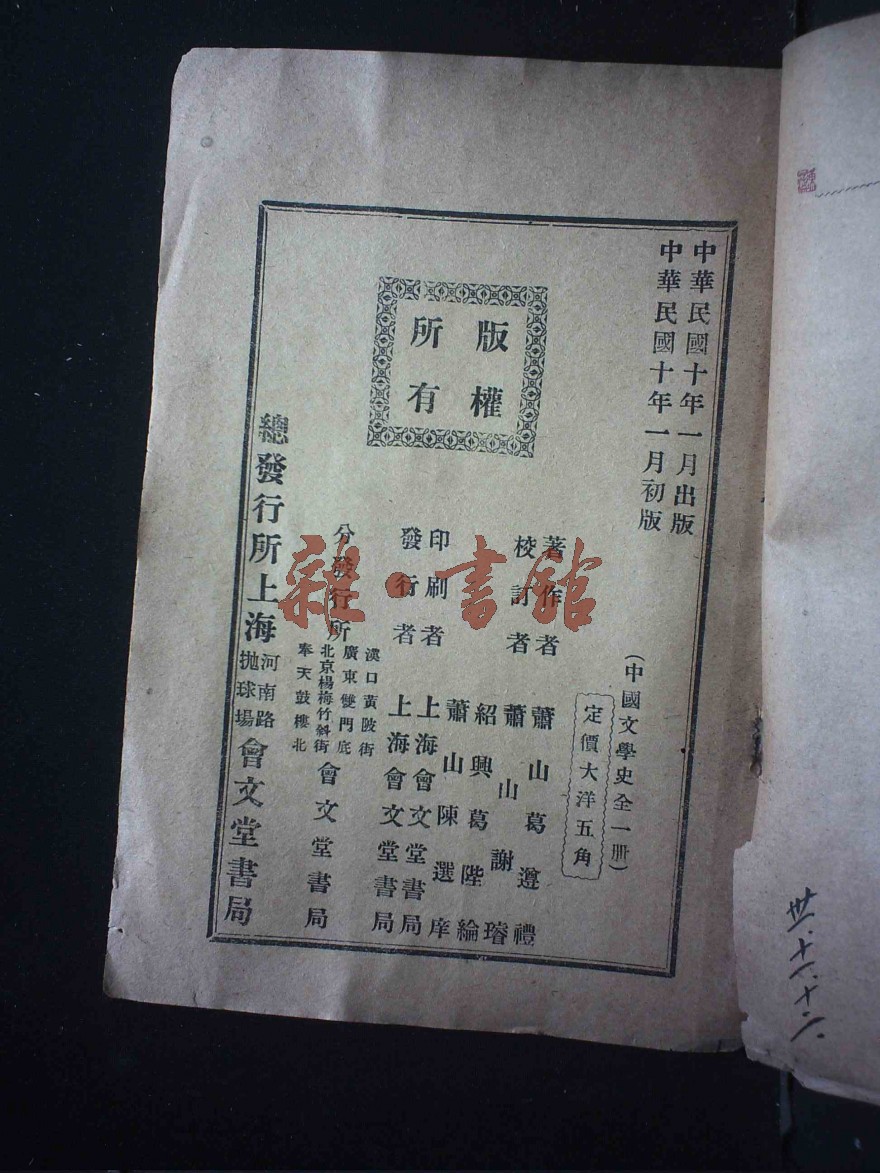 中華民國十年一月出版
中華民國十年一月初版
(中國文學史全一冊)
定價大洋五角
版權
所有
著作者 蕭山葛遵禮
校訂者 蕭山謝璿
紹興葛陛綸
蕭山陳選庠
印刷者 上海會文堂書局
發行者 上海會文堂書局
分發行所
漢口黃陂街
廣東雙門底
北京楊梅竹斜街
奉天鼓樓北
會文堂書局
總發行所上海
河南路
拋球場
會文堂書局
雜·書館